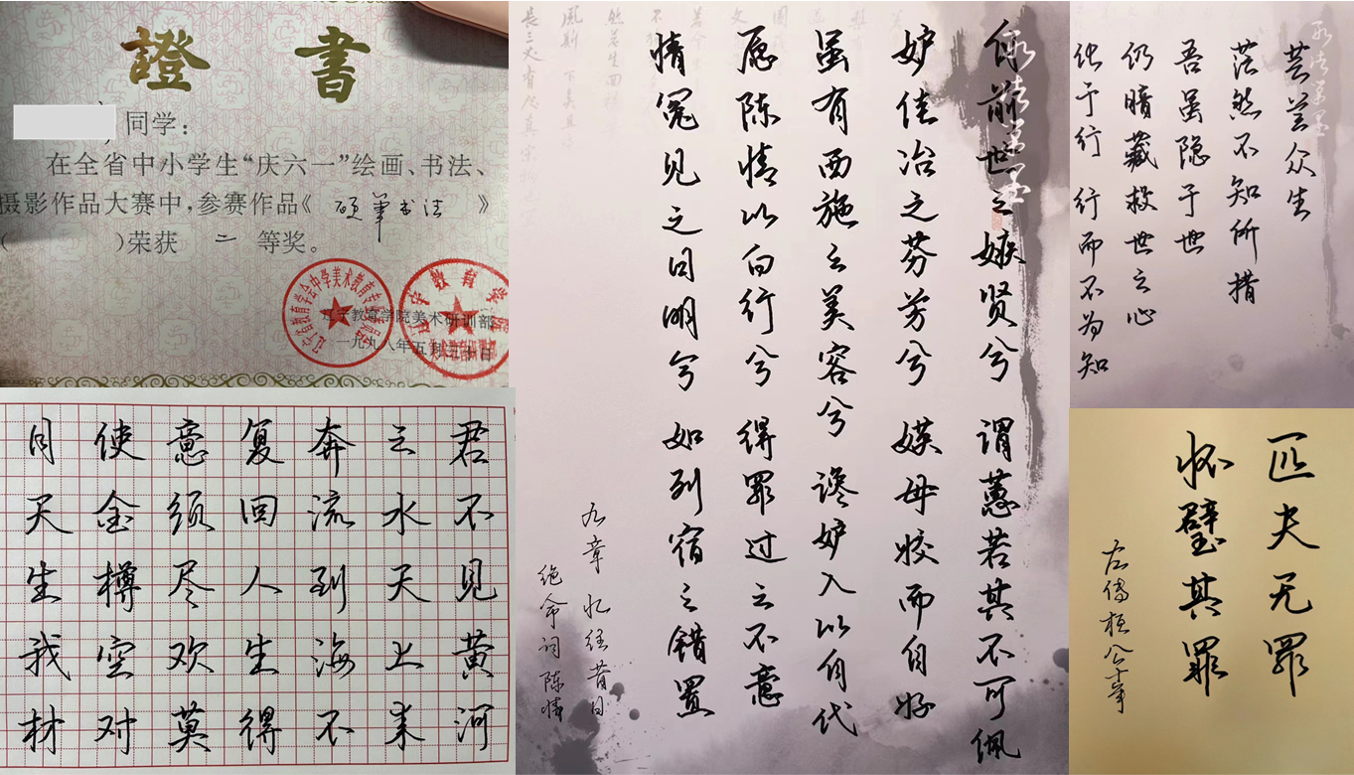 證書
同学：
在全省中小学生“庆六一”绘画、书法、
摄影作品大赛中，参赛作品《硬笔书法》
( )荣获 二 等奖。
辽宁教育学院美术研训部
一九九八年五月三十日
君不见黄河
之水天上来
奔流到海不
复回人生得
意须尽欢莫
使金樽空对
月天生我材
自前世之嫉贤兮 谓蕙若其不可佩
妒佳冶之芬芳兮 嫫母姣而自好
虽有西施之美容兮 谗妒入以自代
愿陈情以白行兮 得罪过之不意
情冤见之日明兮 如列宿之错置
九章 忆往昔日
绝命词 陈情
芸芸众生
茫然不知所措
吾虽隐于世
仍暗藏救世之心
化于行 行而不为知
匹夫无罪
怀璧其罪
左傳桓公十年